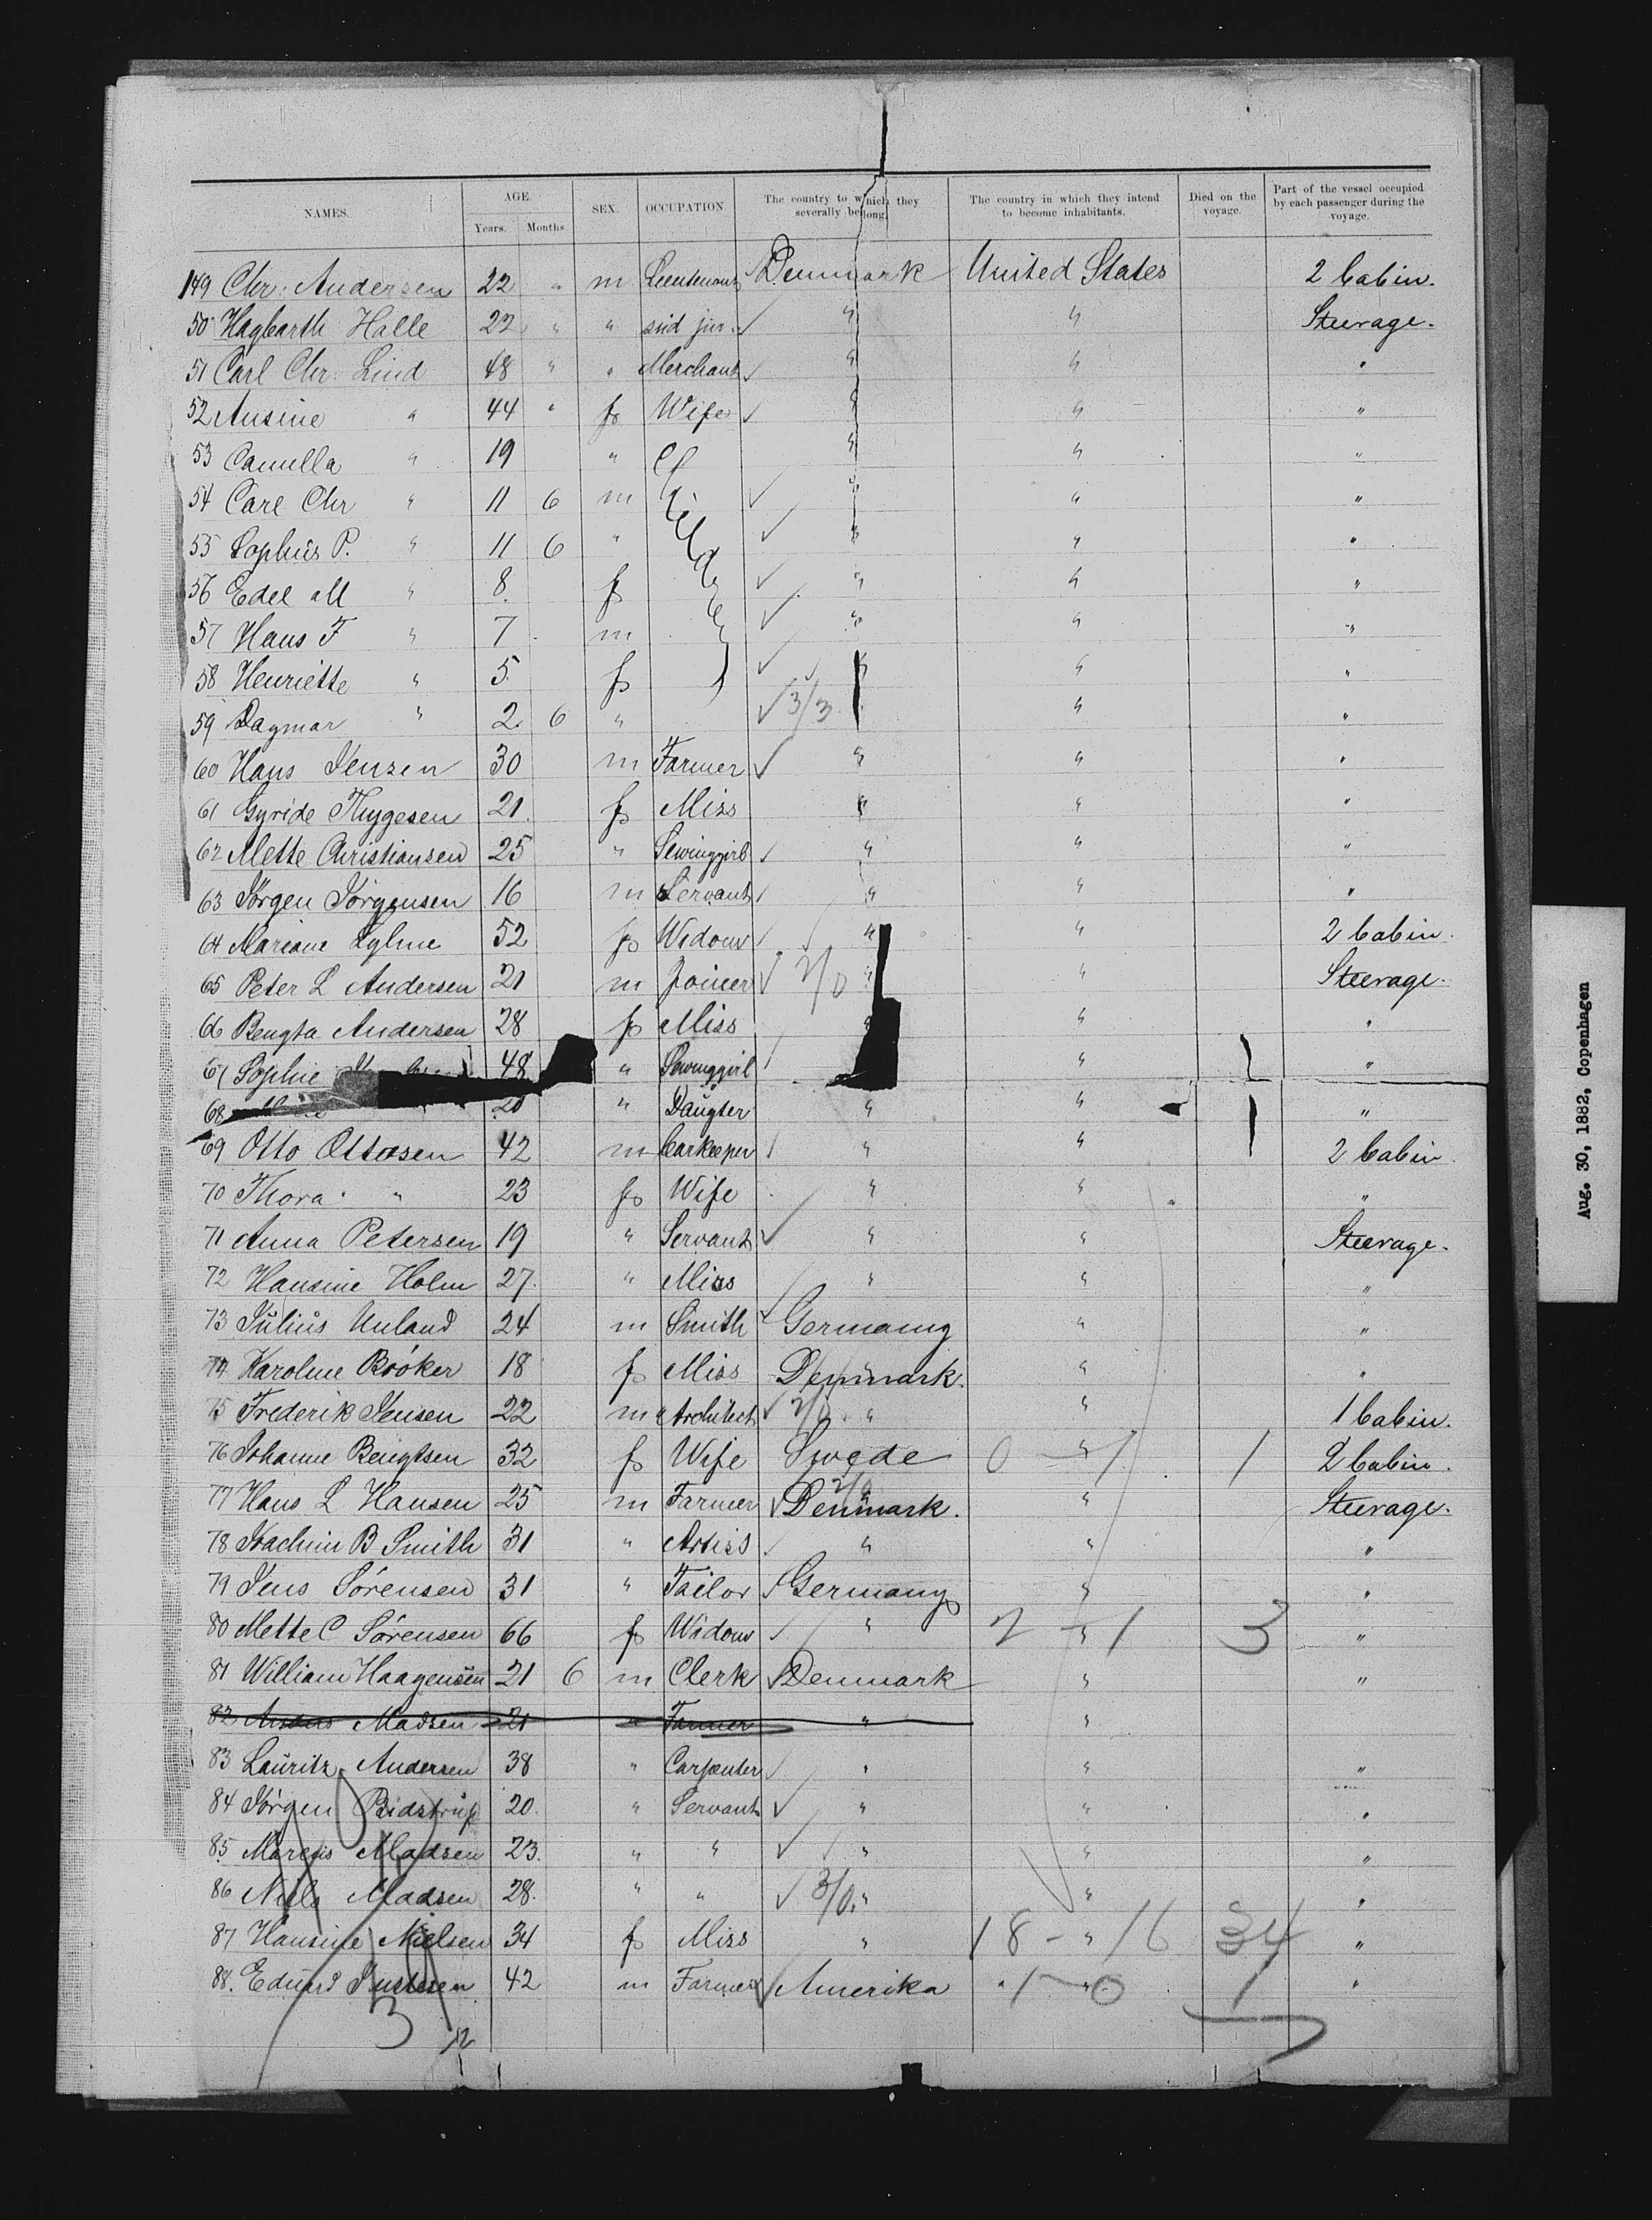 NAMES. AGE. Years. Months. SEX. OCCUPATION. The country to which they severally belong. The country in which they intend to become inhabitants. Died on the voyage. Part of the vessel occupied by each passenger during the voyage.
149 Chr. Andersen 22 " m Lieutenant Denmark United States 2 Cabin.
50 Hagbarth Halle 22 " " stud jur. " " Steerage.
51 Carl Chr. Lind 48 " " Merchant " " "
52 Ansine " 44 " f Wife " " "
53 Camilla " 19 " Children " " "
54 Carl Chr " 11 6 m " " "
55 Sophus P. " 11 6 " " " "
56 Edel M " 8. f " " "
57 Hans F " 7 m " " "
58 Henriette " 5. f " " "
59 Dagmar " 2. 6 " 3/3 " "
60 Hans Jensen 30 m Farmer " " "
61 Gyride Thygesen 21. f Miss " " "
62 Mette Christiansen 25 " Sewinggirl " " "
63 Jörgen Jörgensen 16 m Servant " " "
64 Mariane 52 f Widow " " 2 Cabin.
65 Peter L Andersen 21 m Joiner 2/0 " " Steerage.
66 Bengta Andersen 28 f Miss " " "
67 Sophie 48 " Sewinggirl " "
68 20 " Daugter " " "
69 Otto Ottosen 42 m Carkeeper " " 2 Cabin.
70 Thora " 23 f Wife " " "
71 Anna Petersen 19 " Servant " " Steerage.
72 Hansine Holm 27. " Miss " " "
73 Julius Unland 24 m Smith Germany " "
74 Karoline Bröker 18 f Miss Denmark. " "
75 Frederik Jensen 22 m Architect 2/0 " " 1 Cabin.
76 Johanne Bengtsen 32 f Wife Swede 0 - " 1 1 2 Cabin.
77 Hans L Hansen 25 m Farmer Denmark. " Steerage.
78 Joachim B Smith 31 " Artist " " "
79 Jens Sörensen 31 " Tailor Germany " "
80 Mette C Sörensen 66 f Widow " 2 - " 1 3 "
81 William Haagensen 21 6 m Clerk Denmark " "
82 Anders Madsen 21 " Farmer " "
83 Lauritz Andersen 38 " Carpenter " " "
84 Jörgen Bidstrup 20. " Servant " " "
85 Marcus Madsen 23. " " " " "
86 Niels Madsen 28. " " 3/0 " " "
87 Hansine Nielsen 34 f Miss " 18 - " 16 34 "
88. Eduard Justesen 42 m Farmer Amerika 1 - " 0 1 "
3
12
Aug. 30, 1882, Copenhagen